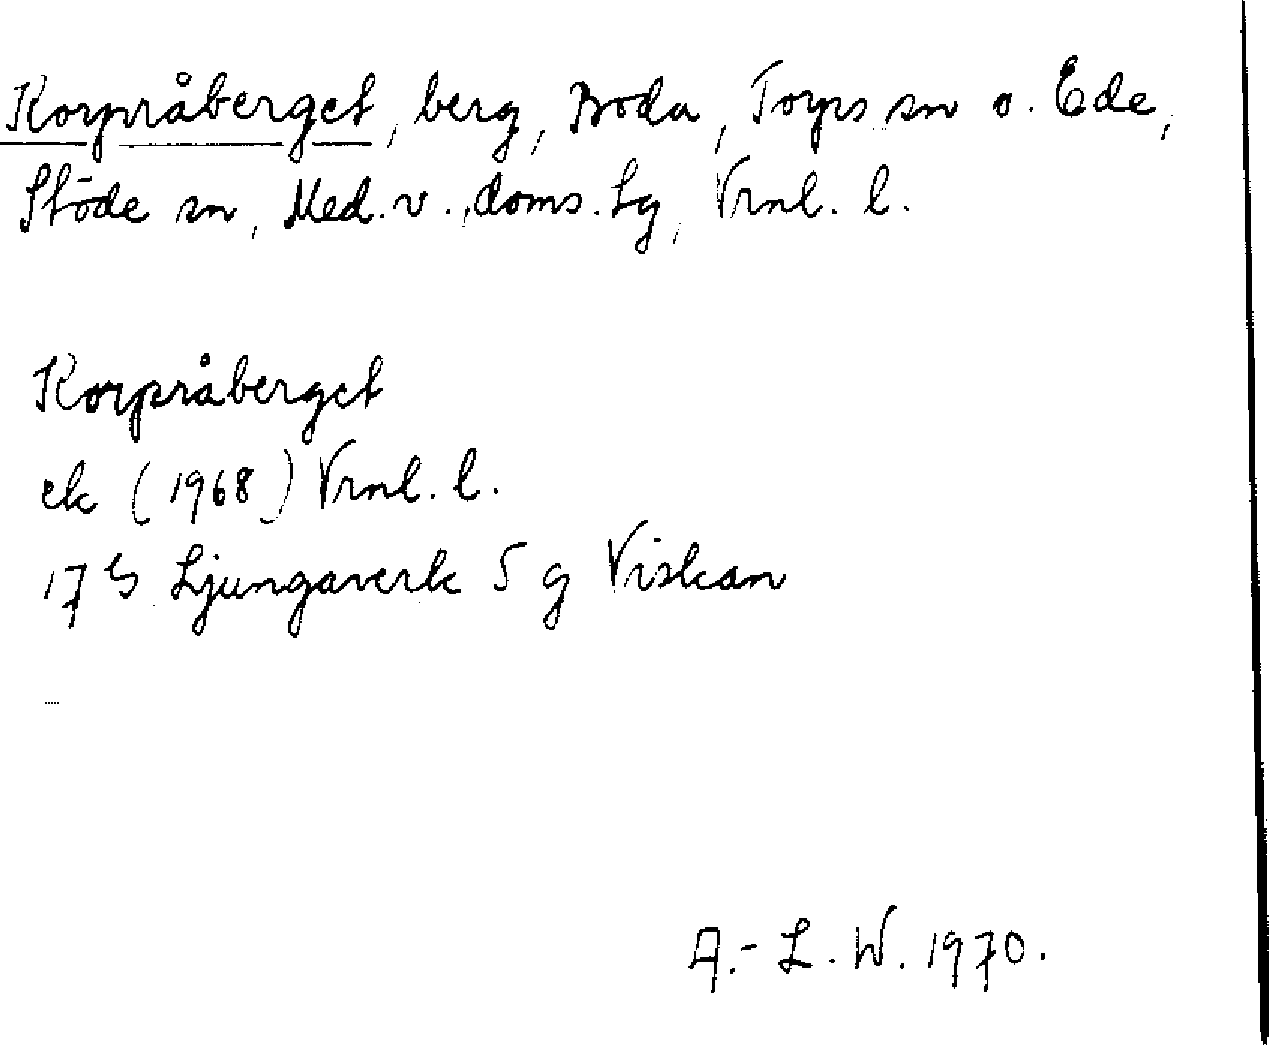 Korpråberget, berg, Boda, Torps sn o. Ede,
Stöde sn, Med. v., doms. Lg, Vrnl. l.
Korpråberget
ek (1968) Vrnl. l.
17 G Ljungaverk 5 g Viskan
A.-L. W. 1970.